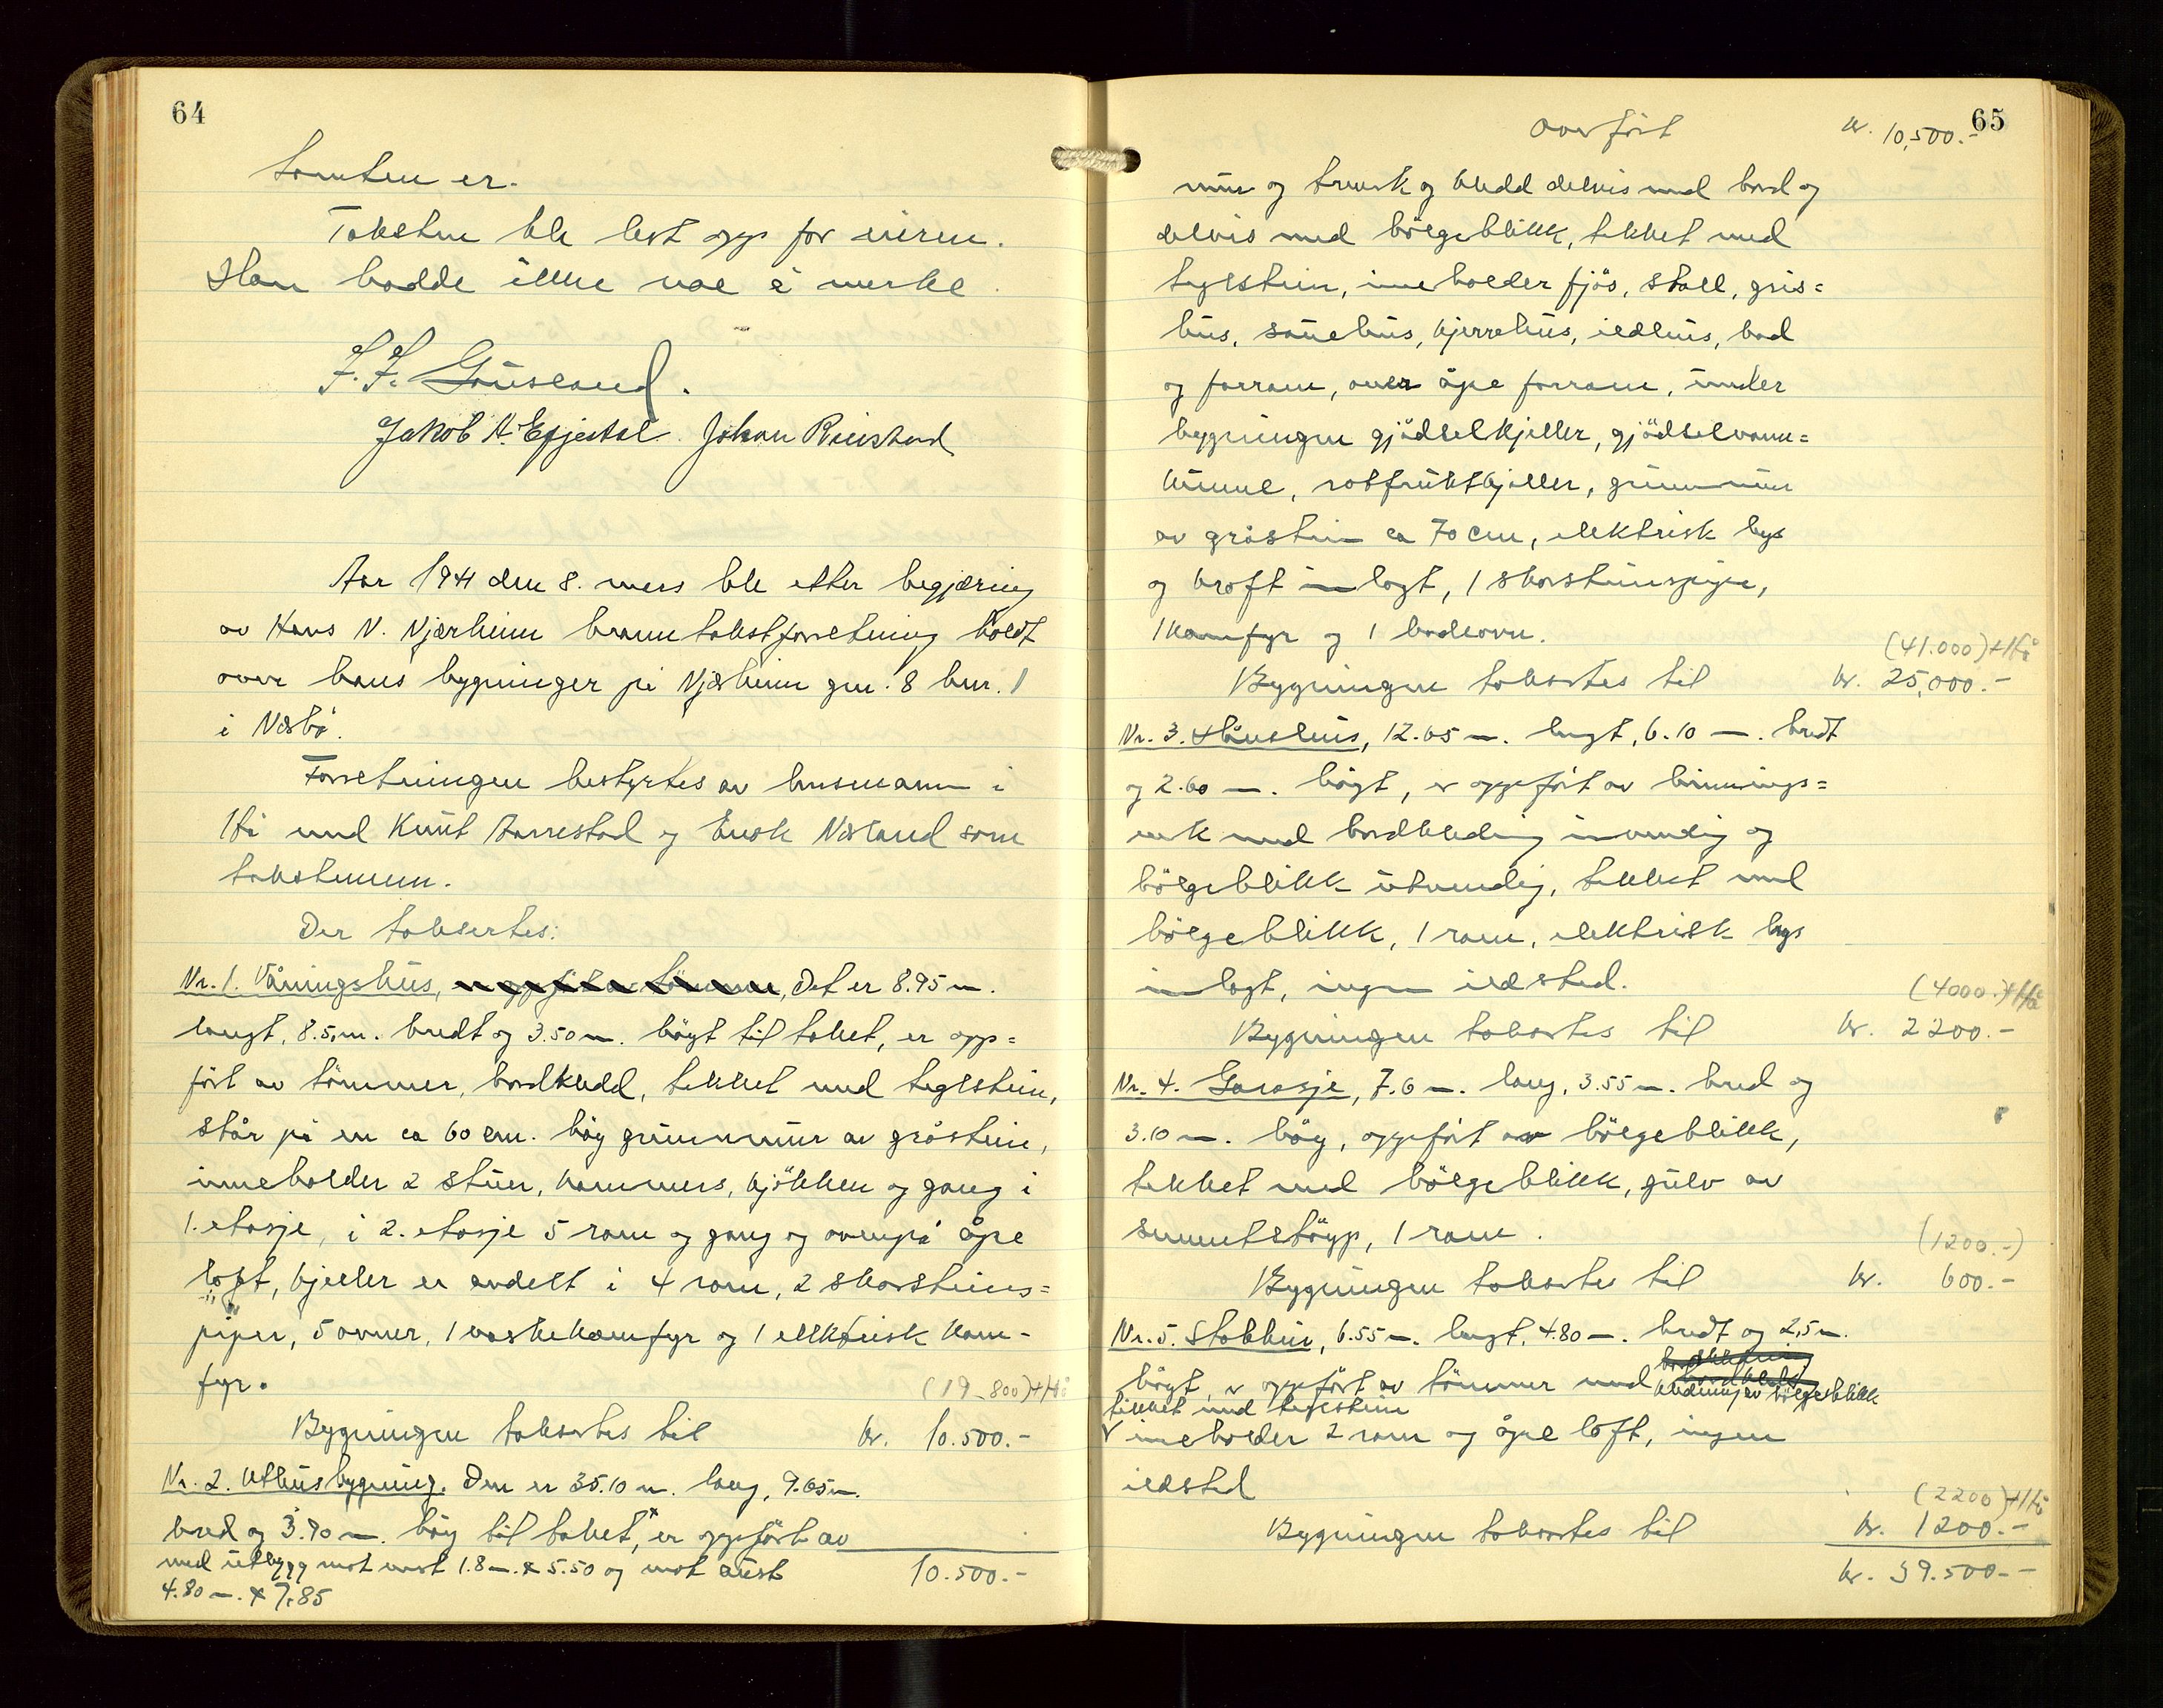 64
tomten er.
Taksten ble lest opp for eieren.
Han hadde ikke noe å merke.
F. F. Gausland.
Jakob A. Efjestal. Johan Riestad
Aar 1941 den 8. mars ble etter begjæring
av Hans N. Njærheim branntakstforretning holdt
over hans bygninger på Njærheim gnr. 8 bnr. 1
i Nærbø.
Forretningen bestyrtes av lensmann i
Hå med Knut Aarrestad og Enok Nærland som
takstmenn.
Der taksertes:
Nr. 1. Våningshus, er oppført av tømmer, Det er 8.95 m.
langt, 8.5 m. bredt og 3.50 m. högt til taket, er opp=
fört av tömmer, bordkledd, tekket med teglstein,
står på en ca 60 cm. höy grunnmur av gråstein,
inneholder 2 stuer, kammers, kjökken og gang i
1. etasje, i 2. etasje 5 rom og gang og ovenpå åpe
loft, kjeller er avdelt i 4 rom, 2 skorsteins=
piper, 5 ovner, 1 vaskekomfyr og 1 elektrisk kom-
fyr.
(19.800)+Hå
Bygningen taksertes til kr. 10.500.-
Nr. 2. Uthusbygning. Den er 35.10 m. lang, 9.65 m.
bred og 3.90 m. höy til taket,* er oppfört av
med utbygg mot vest 1.8 m. x 5.50 og mot aust 10.500.-
4.80 m. x 7.85
65
Overført kr. 10,500.-
mur og treverk og kledd delvis med bord og
delvis med bölgeblikk, tekket med
teglstein, inneholder fjös, stall, gris=
hus, sauehus, kjerrehus, ildhus, bad
og forrom, over åpe forrom, under
bygningen gjödselkjeller, gjödselvann=
kumme, rotfruktkjeller, grunnmur
av gråstein ca 70 cm, elektrisk lys
og kraft innlagt, 1 skorsteinspipe,
1 komfyr og 1 badeovn.
(41.000)+Hå
Bygningen taksertes til kr. 25,000.-
Nr. 3. Hönsehus, 12.65 m. langt, 6.10 m. bredt
og 2.60 m. högt, er oppfört av binnings=
verk med bordkledning innvendig og
bölgeblikk utvendig, tekket med
bölgeblikk, 1 rom, elektrisk lys
innlagt, ingen ildsted.
(4000.-)+Hå
Bygningen taksertes til kr. 2200.-
Nr. 4. Garasje, 7.6 m. lang, 3.55 m. bred og
3.10 m. höy, oppfört av bölgeblikk,
tekket med bölgeblikk, gulv av
sementstöyp, 1 rom.
(1200.-)
Bygningen taksertes til kr. 600.-
Nr. 5. Stabbur, 6.55 m. langt, 4.80 m. bredt og 2,5 m.
högt, er oppfört av tömmer med kledning av bölgeblikk
tekket med teglstein
inneholder 2 rom og åpe loft, ingen
ildsted
(2200)+Hå
Bygningen taksertes til kr. 1200.-
kr. 39.500.-